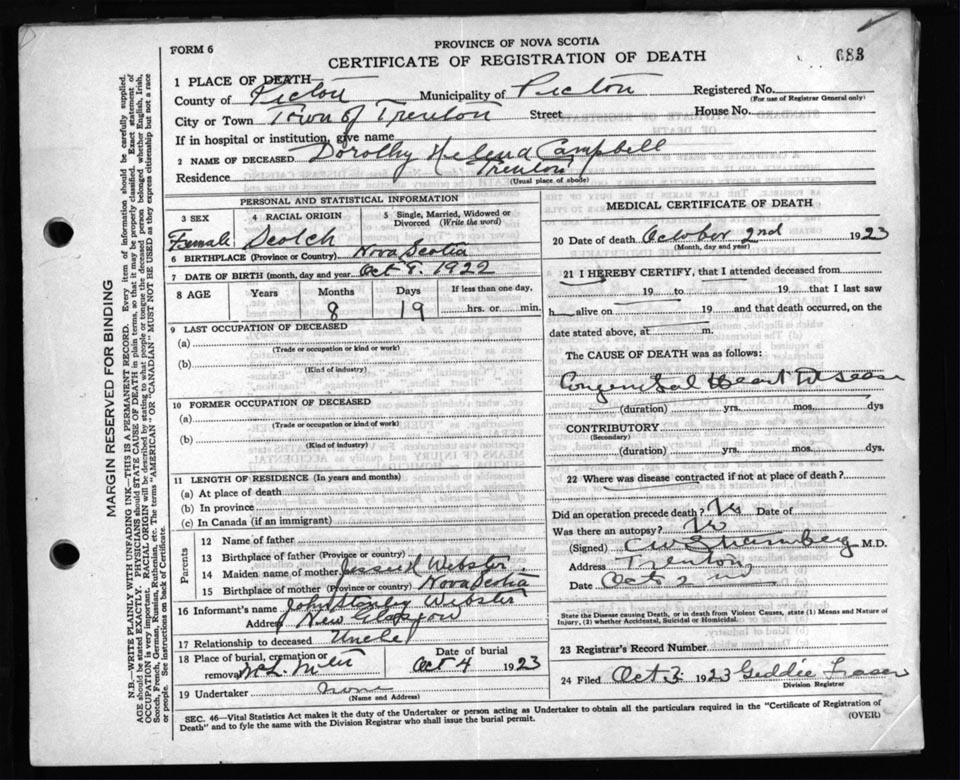 FORM 6
PROVINCE OF NOVA SCOTIA
CERTIFICATE OF REGISTRATION OF DEATH
683
1 PLACE OF DEATH
County of Pictou Municipality of Pictou Registered No.
(For use of Registrar General only)
City or Town Town of Trenton Street House No.
If in hospital or institution, give name
2 NAME OF DECEASED Dorothy Campbell
Residence Trenton
(Usual place of abode)
PERSONAL AND STATISTICAL INFORMATION
3 SEX 4 RACIAL ORIGIN 5 Single, Married, Widowed or Divorced (Write the word)
Female Scotch
6 BIRTHPLACE (Province or Country) Nova Scotia
7 DATE OF BIRTH (month, day and year) Oct 9. 1922
8 AGE Years Months Days If less than one day,
8 19 hrs. or min.
9 LAST OCCUPATION OF DECEASED
(a)
(Trade or occupation or kind or work)
(b)
(Kind of industry)
10 FORMER OCCUPATION OF DECEASED
(a)
(Trade or occupation or kind of work)
(b)
(Kind of industry)
11 LENGTH OF RESIDENCE (In years and months)
(a) At place of death
(b) In province
(c) In Canada (if an immigrant)
Parents
12 Name of father
13 Birthplace of father (Province or country)
14 Maiden name of mother Webster
15 Birthplace of mother (Province or country) Nova Scotia
16 Informant's name John Webster
Address New Glasgow
17 Relationship to deceased Uncle
18 Place of burial, cremation or removal Date of burial
Oct 4 1923
19 Undertaker none
(Name and Address)
MEDICAL CERTIFICATE OF DEATH
20 Date of death October 2nd 1923
(Month, day and year)
21 I HEREBY CERTIFY, that I attended deceased from
19 to 19 that I last saw
h alive on 19 and that death occurred, on the
date stated above, at m.
The CAUSE OF DEATH was as follows:
Congenital Heart Disease
(duration) yrs. mos. dys
CONTRIBUTORY
(Secondary)
(duration) yrs. mos. dys
22 Where was disease contracted if not at place of death?
Did an operation precede death? No Date of
Was there an autopsy? No
(Signed) M.D.
Address Trenton
Date Oct 2
State the Disease causing Death, or in death from Violent Causes, state (1) Means and Nature of
Injury, (2) whether Accidental, Suicidal or Homicidal.
23 Registrar's Record Number
24 Filed Oct 3 1923
Division Registrar
SEC. 46—Vital Statistics Act makes it the duty of the Undertaker or person acting as Undertaker to obtain all the particulars required in the "Certificate of Registration of
Death" and to fyle the same with the Division Registrar who shall issue the burial permit.
(OVER)
MARGIN RESERVED FOR BINDING
N.B.—WRITE PLAINLY WITH UNFADING INK—THIS IS A PERMANENT RECORD. Every item of information should be carefully supplied.
AGE should be stated EXACTLY. PHYSICIANS should STATE CAUSE OF DEATH in plain terms, so that it may be properly classified. Exact statement of
OCCUPATION is very important. RACIAL ORIGIN will be described by stating to what people or tongue the deceased person belonged whether English, Irish,
Scotch, French, German, Russian, Ruthenian, etc. The terms "AMERICAN" OR "CANADIAN" MUST NOT BE USED as they express citizenship but not a race
or people. See instructions on back of Certificate.